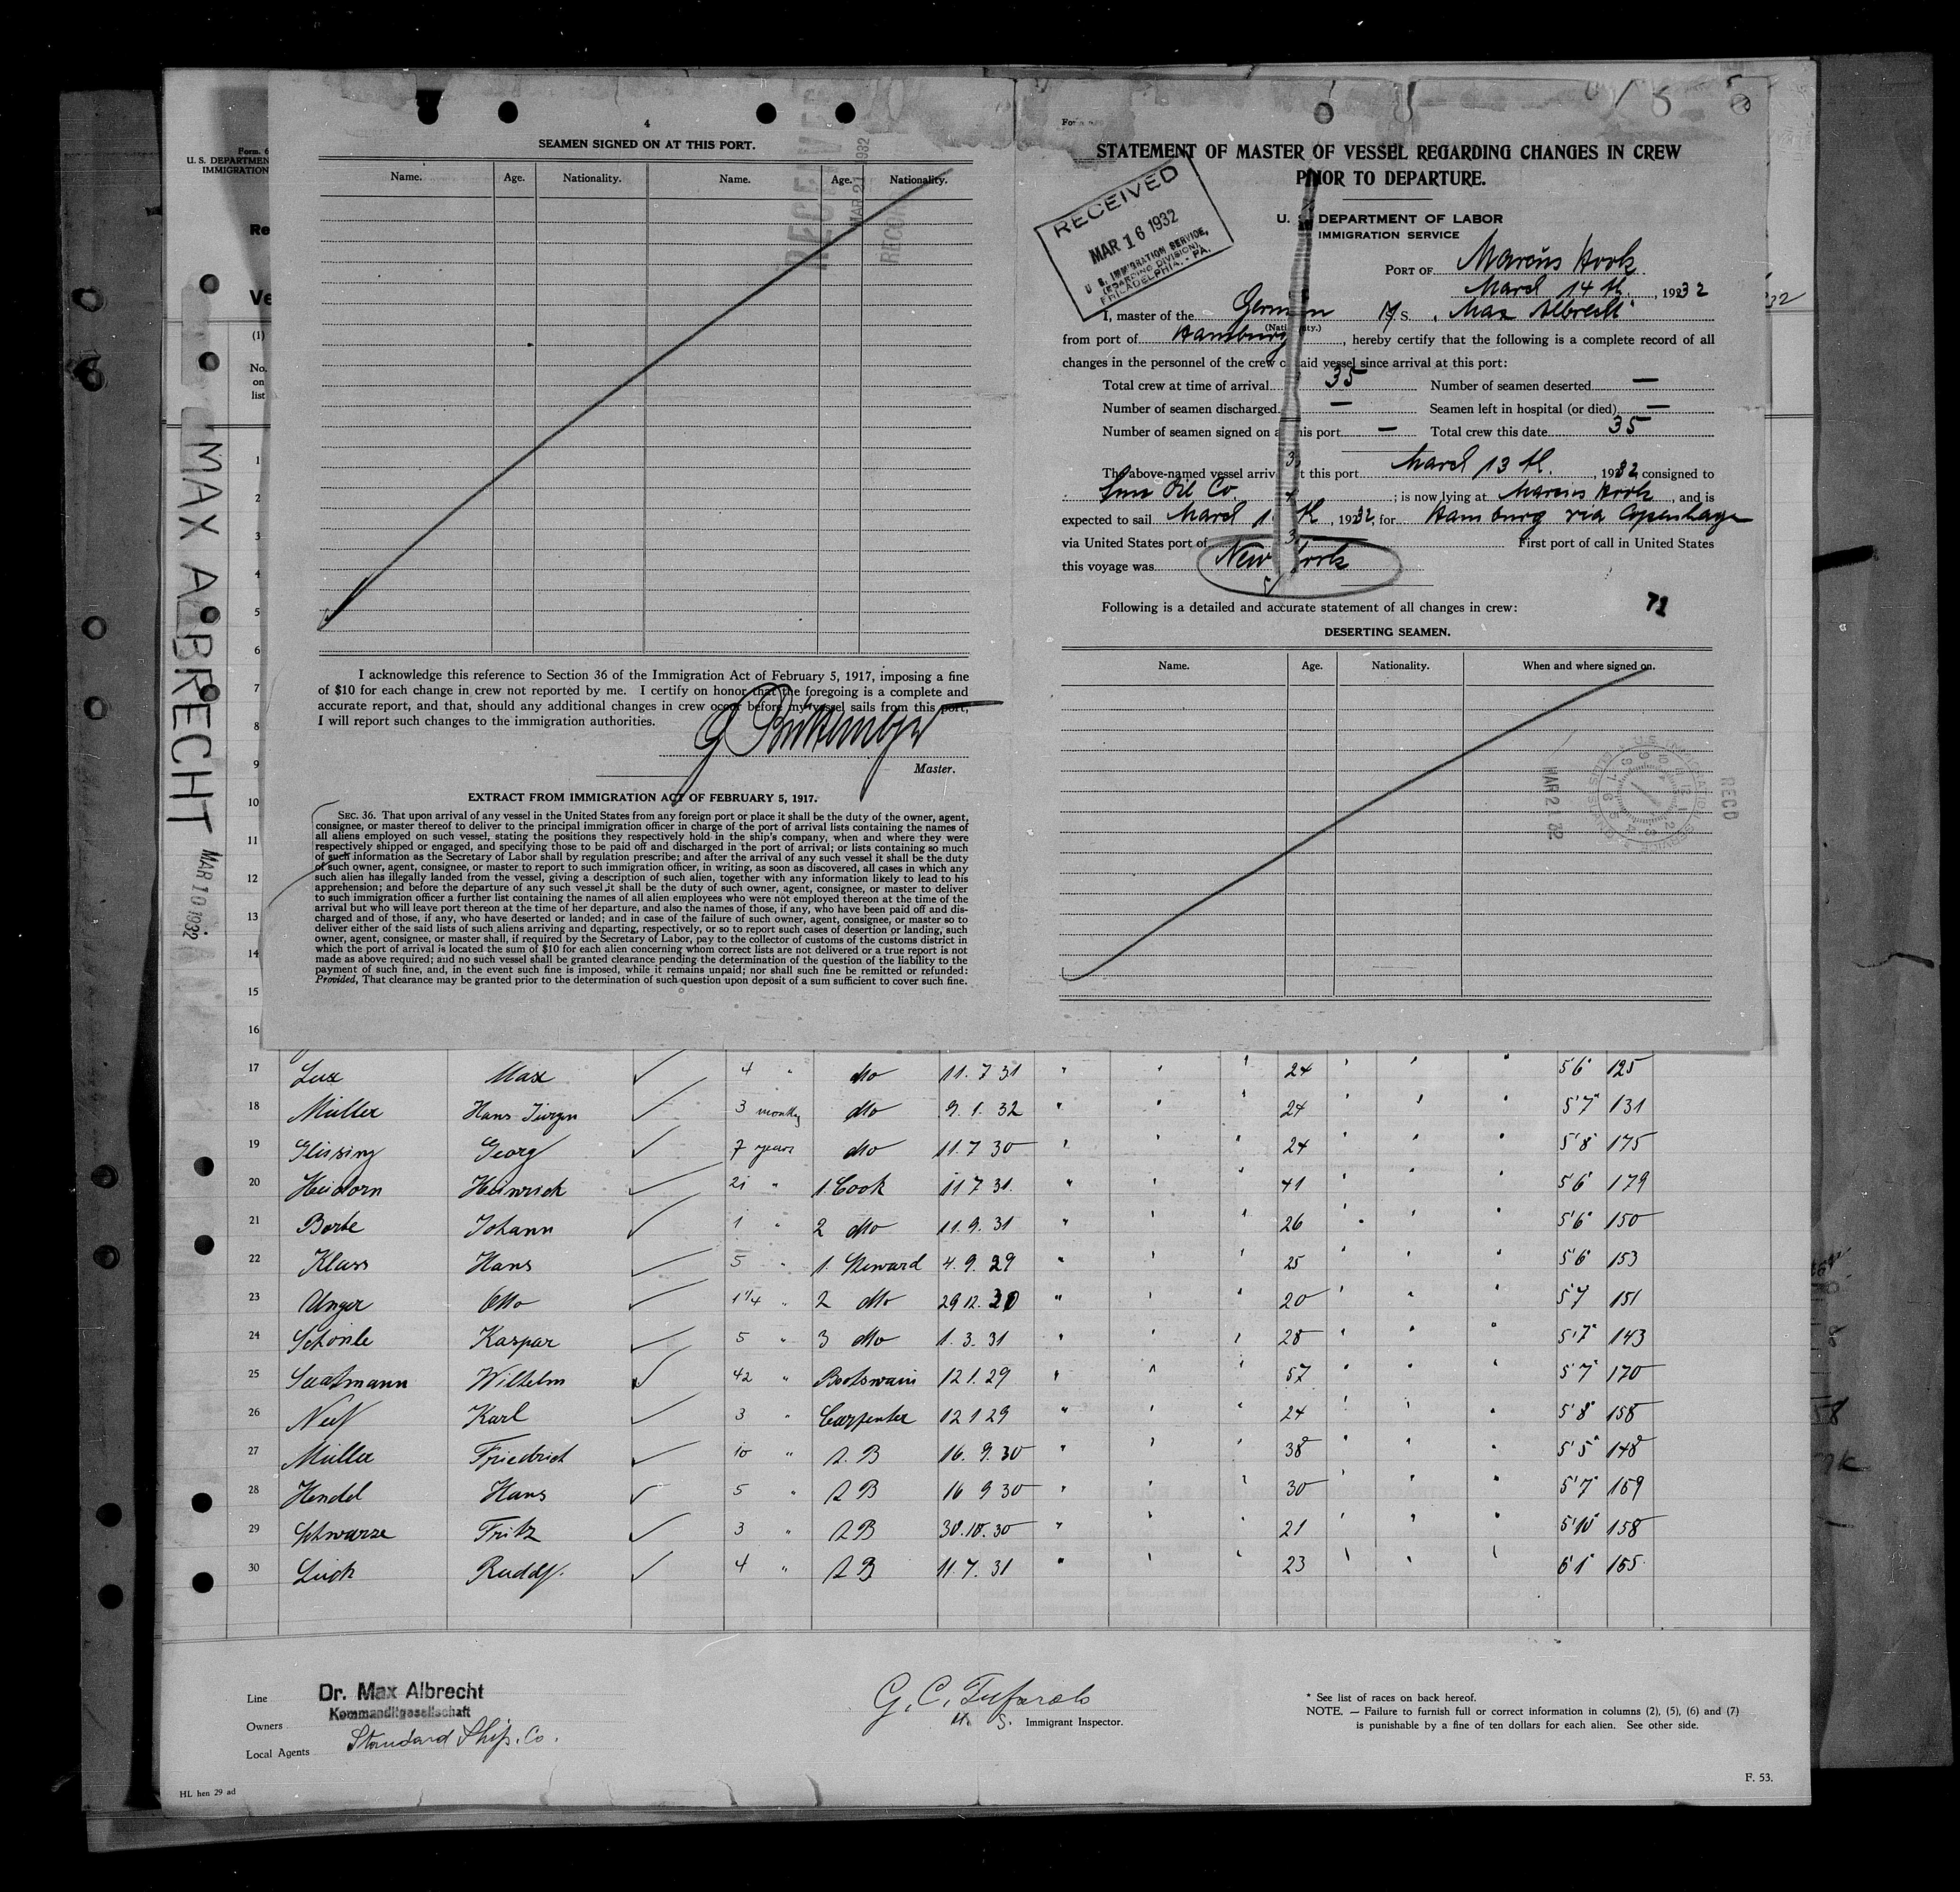 4
SEAMEN SIGNED ON AT THIS PORT.
Name. Age. Nationality. Name. Age. Nationality.
MAR 21 1932
I acknowledge this reference to Section 36 of the Immigration Act of February 5, 1917, imposing a fine
of $10 for each change in crew not reported by me. I certify on honor that the foregoing is a complete and
accurate report, and that, should any additional changes in crew occur before my vessel sails from this port,
I will report such changes to the immigration authorities.
Master.
EXTRACT FROM IMMIGRATION ACT OF FEBRUARY 5, 1917.
SEC. 36. That upon arrival of any vessel in the United States from any foreign port or place it shall be the duty of the owner, agent,
consignee, or master thereof to deliver to the principal immigration officer in charge of the port of arrival lists containing the names of
all aliens employed on such vessel, stating the positions they respectively hold in the ship's company, when and where they were
respectively shipped or engaged, and specifying those to be paid off and discharged in the port of arrival; or lists containing so much
of such information as the Secretary of Labor shall by regulation prescribe; and after the arrival of any such vessel it shall be the duty
of such owner, agent, consignee, or master to report to such immigration officer, in writing, as soon as discovered, all cases in which any
such alien has illegally landed from the vessel, giving a description of such alien, together with any information likely to lead to his
apprehension; and before the departure of any such vessel it shall be the duty of such owner, agent, consignee, or master to deliver
to such immigration officer a further list containing the names of all alien employees who were not employed thereon at the time of the
arrival but who will leave port thereon at the time of her departure, and also the names of those, if any, who have been paid off and dis-
charged and of those, if any, who have deserted or landed; and in case of the failure of such owner, agent, consignee, or master so to
deliver either of the said lists of such aliens arriving and departing, respectively, or so to report such cases of desertion or landing, such
owner, agent, consignee, or master shall, if required by the Secretary of Labor, pay to the collector of customs of the customs district in
which the port of arrival is located the sum of $10 for each alien concerning whom correct lists are not delivered or a true report is not
made as above required; and no such vessel shall be granted clearance pending the determination of the question of the liability to the
payment of such fine, and, in the event such fine is imposed, while it remains unpaid; nor shall such fine be remitted or refunded:
Provided, That clearance may be granted prior to the determination of such question upon deposit of a sum sufficient to cover such fine.
STATEMENT OF MASTER OF VESSEL REGARDING CHANGES IN CREW
PRIOR TO DEPARTURE.
U. S. DEPARTMENT OF LABOR
IMMIGRATION SERVICE
RECEIVED
MAR 16 1932
U. S. IMMIGRATION SERVICE,
(BOARDING DIVISION)
PHILADELPHIA, PA.
PORT OF Marcus Hook
March 14th, 1932
I, master of the German M/S. "Max Albrecht"
(Nationality.)
from port of Hamburg, hereby certify that the following is a complete record of all
changes in the personnel of the crew of said vessel since arrival at this port:
Total crew at time of arrival 35 Number of seamen deserted —
Number of seamen discharged — Seamen left in hospital (or died) —
Number of seamen signed on at this port — Total crew this date 35
The above-named vessel arrived at this port March 13th, 1932 consigned to
Sun Oil Co.; is now lying at Marcus Hook, and is
expected to sail March th, 1932, for Hamburg via Copenhagen
via United States port of First port of call in United States
this voyage was New York
Following is a detailed and accurate statement of all changes in crew:
DESERTING SEAMEN.
Name. Age. Nationality. When and where signed on.
MAR 2 32
RECD
MAX ALBRECHT MAR 10 1932
U. S. DEPARTMENT
IMMIGRATION
Re
Ve
(1)
No.
on
list
1
2
3
4
5
6
7
8
9
10
11
12
13
14
15
16
17 Lux Max 4 " dto 11.7 31 24 5'6" 125
18 Müller Hans Jürgen 3 months dto 9.1.32 24 5'7" 131
19 Glissing Georg 7 years dto 11.7 30 24 5'8" 175
20 Heidorn Heinrich 21 " 1. Cook 11 7 31. 41 5'6" 179
21 Borbe Johann 1 " 2 dto 11.9.31 26 5'6" 150
22 Klass Hans 5 " 1. Steward 4.9.29 25 5'6 153
23 Unger Otto 1 1/4 " 2 dto 29 12. 30 20 5'7 151
24 Schönle Kaspar 5 " 3 dto 1.3.31 28 5'7" 143
25 Saatmann Wilhelm 42 " Bootswain 12 1.29 57 5'7" 170
26 Neef Karl 3 " Carpenter 12 1 29 24 5'8" 158
27 Müller Friedrich 10 " A.B 16.9.30 38 5'5" 148
28 Hendel Hans 5 " AB 16 9 30 30 5'7" 159
29 Schwarze Fritz 3 " AB 30.10.30 21 5'10" 158
30 Lück Rudolf. 4 " AB 11.7.31 23 6'1" 165
Line Dr. Max Albrecht
Owners Kommanditgesellschaft
Local Agents Standard Ship. Co.
U. S. Immigrant Inspector.
* See list of races on back hereof.
NOTE. — Failure to furnish full or correct information in columns (2), (5), (6) and (7)
is punishable by a fine of ten dollars for each alien. See other side.
HL hen 29 ad
F. 53.